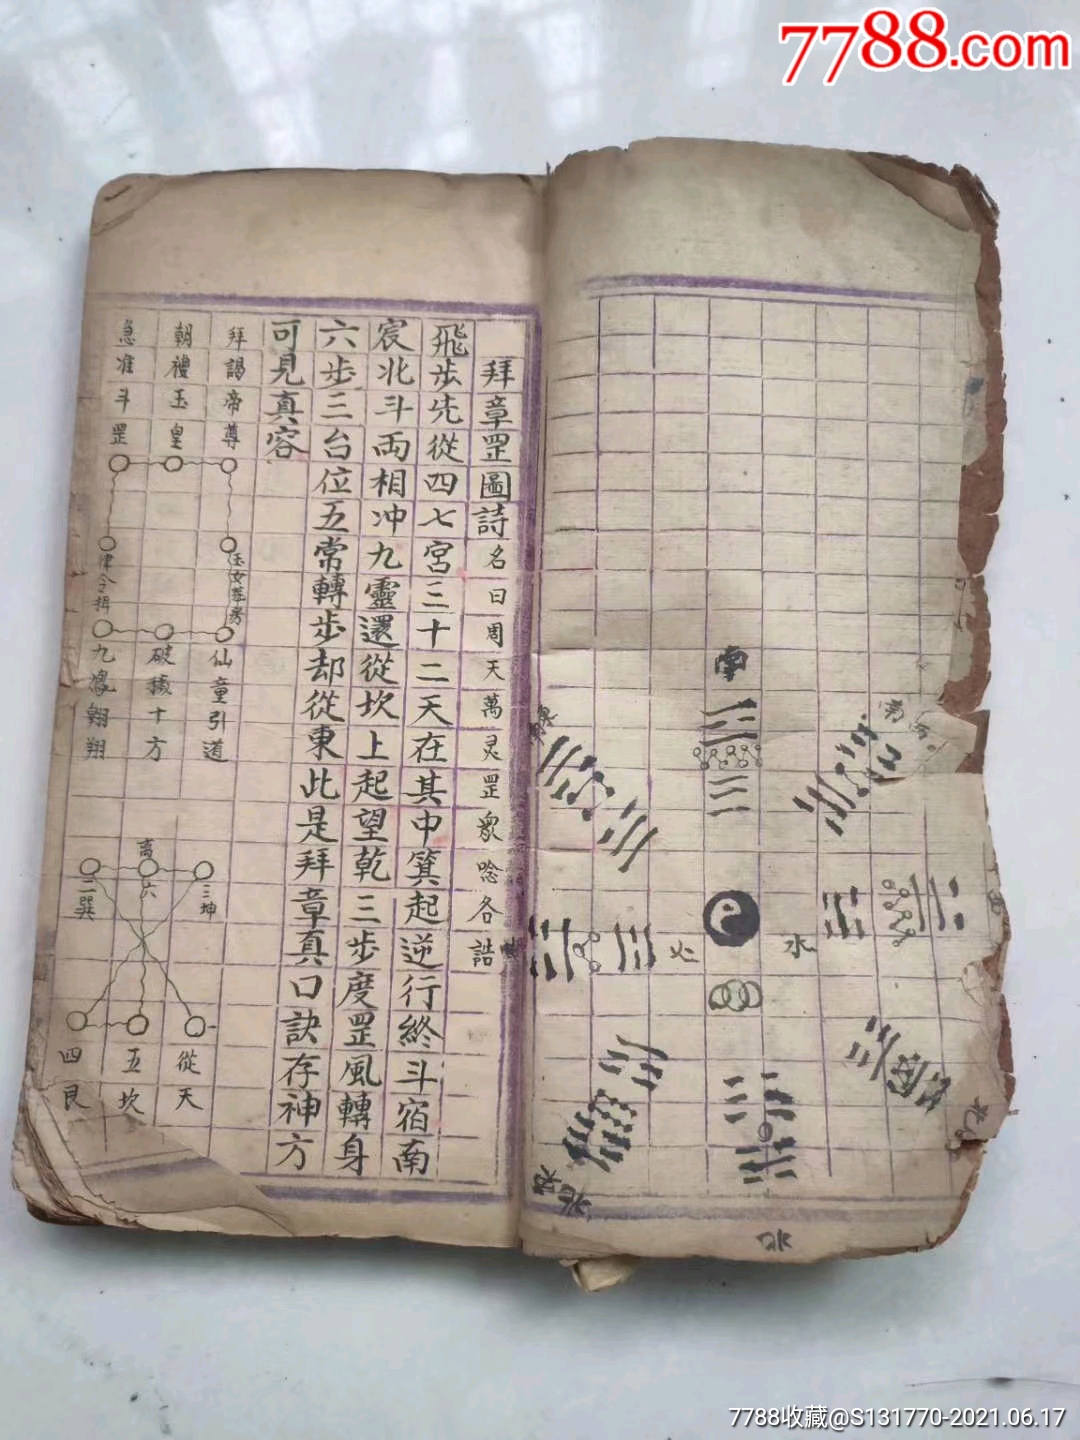 7788.com
南
火
水
北
拜章罡圖詩名曰周天萬灵罡眾唸各誥
飛步先從四七宮三十二天在其中箕起逆行終斗宿南
宸北斗両相冲九靈還從坎上起望乾三步度罡風轉身
六步三台位五常轉步却從東此是拜章真口訣存神方
可見真容
拜謁帝尊
朝禮玉皇
急准斗罡
律令揖
仙童引道
破穢十方
九鳳翱翔
离
三坤
六
二巽
從天
五坎
四艮
7788收藏@S131770-2021.06.17